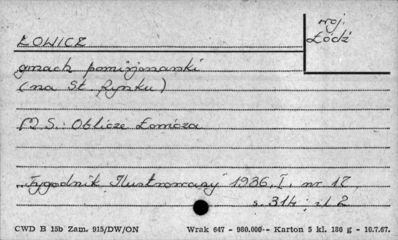 woj.
Łódź
ŁOWICZ
gmach pomisjonarski
(na St. Rynku)
M.S.: Oblicze Łowicza
"Tygodnik Ilustrowany" 1936, I, nr 17,
s. 314; il 2
CWD B 15b Zam. 915/DW/ON Wrak 647 - 980.000 - Karton 5 kl. 180 g - 10.7.67.